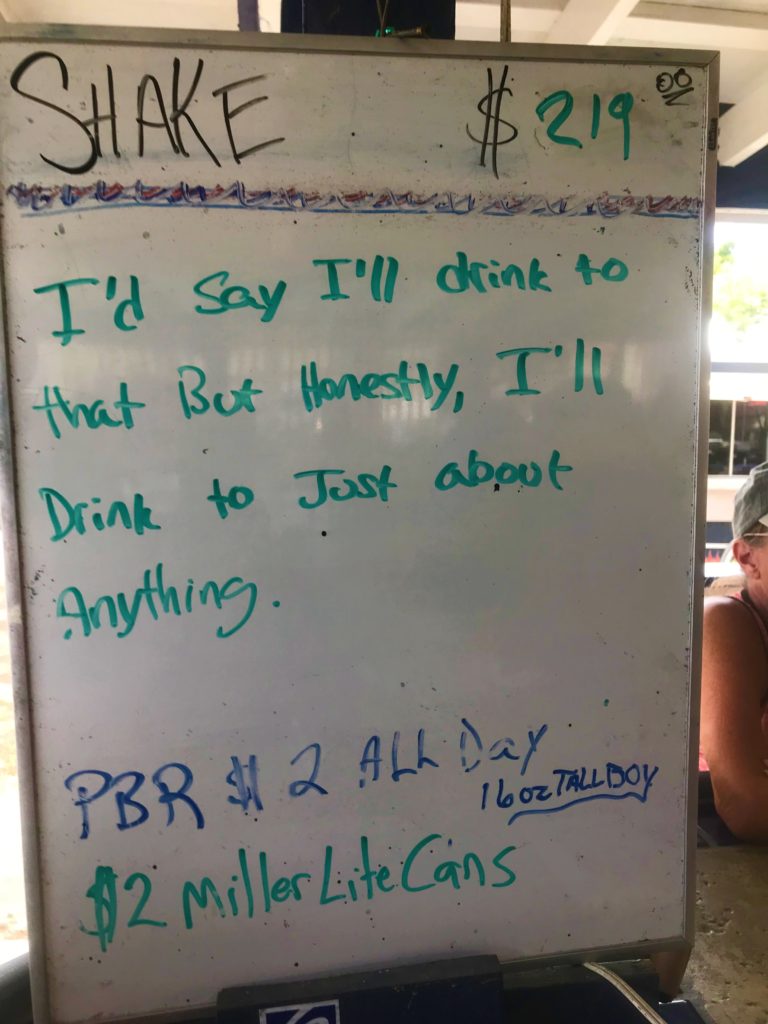 SHAKE $ 219 00
I'd Say I'll drink to
that But Honestly, I'll
Drink to Just about
Anything.
PBR $ 2 ALL Day
16oz TALL BOY
$2 Miller Lite Cans